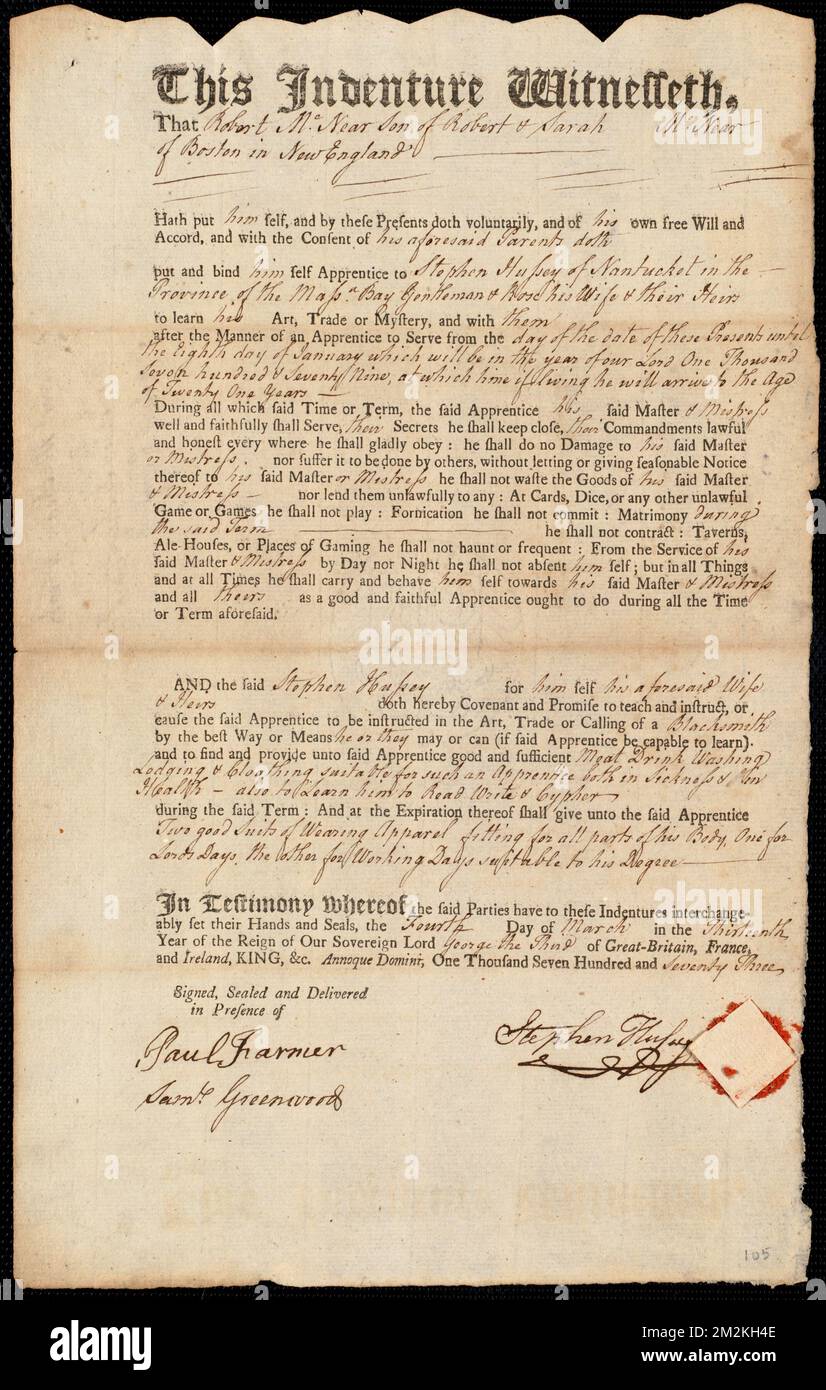 This Indenture Witnesseth,
That Robert Mc Near Son of Robert & Sarah Mc Near
of Boston in New England
Hath put him self, and by these Presents doth voluntarily, and of his own free Will and
Accord, and with the Consent of his aforesaid Parents doth
put and bind him self Apprentice to Stephen Hussey of Nantucket in the
Province of the Massa Bay Gentleman & Rose his Wife & their Heirs
to learn his Art, Trade or Mystery, and with them
after the Manner of an Apprentice to Serve from the day of the date of these Presents until
the Eighth day of January which will be in the year of our Lord One Thousand
Seven hundred & Seventy Nine, at which time if living he will arrive to the Age
of Twenty One Years
During all which said Time or Term, the said Apprentice his said Master & Mistress
well and faithfully shall Serve, their Secrets he shall keep close, their Commandments lawful
and honest every where he shall gladly obey : he shall do no Damage to his said Master
or Mistress. nor suffer it to be done by others, without letting or giving seasonable Notice
thereof to his said Master or Mistress he shall not waste the Goods of his said Master
& Mistress nor lend them unlawfully to any : At Cards, Dice, or any other unlawful
Game or Games he shall not play : Fornication he shall not commit : Matrimony during
the said Term he shall not contract : Taverns,
Ale-Houses, or Places of Gaming he shall not haunt or frequent : From the Service of his
said Master & Mistress by Day nor Night he shall not absent him self ; but in all Things
and at all Times he shall carry and behave him self towards his said Master & Mistress
and all theirs as a good and faithful Apprentice ought to do during all the Time
or Term aforesaid.
AND the said Stephen Hussey for him self his aforesaid Wife
& Heirs doth hereby Covenant and Promise to teach and instruct, or
cause the said Apprentice to be instructed in the Art, Trade or Calling of a Blacksmith
by the best Way or Means he or they may or can (if said Apprentice be capable to learn)
and to find and provide unto said Apprentice good and sufficient Meat Drink Washing
Lodging & Cloathing suitable for such an Apprentice both in Sickness & in
Health – also to Learn him to Read Write & Cypher
during the said Term : And at the Expiration thereof shall give unto the said Apprentice
Two good Suits of Wearing Apparel fitting for all parts of his Body, One for
Lords Days, the other for Working Days suitable to his Degree
In Testimony whereof, the said Parties have to these Indentures interchange-
ably set their Hands and Seals, the Fourth Day of March in the Thirteenth
Year of the Reign of Our Sovereign Lord George the Third of Great-Britain, France,
and Ireland, KING, &c. Annoque Domini, One Thousand Seven Hundred and Seventy Three
Signed, Sealed and Delivered
in Presence of
Paul Farmer
Stephen Hussey
Saml. Greenwood
105
alamy
Image ID: 2M2KH4E
www.alamy.com